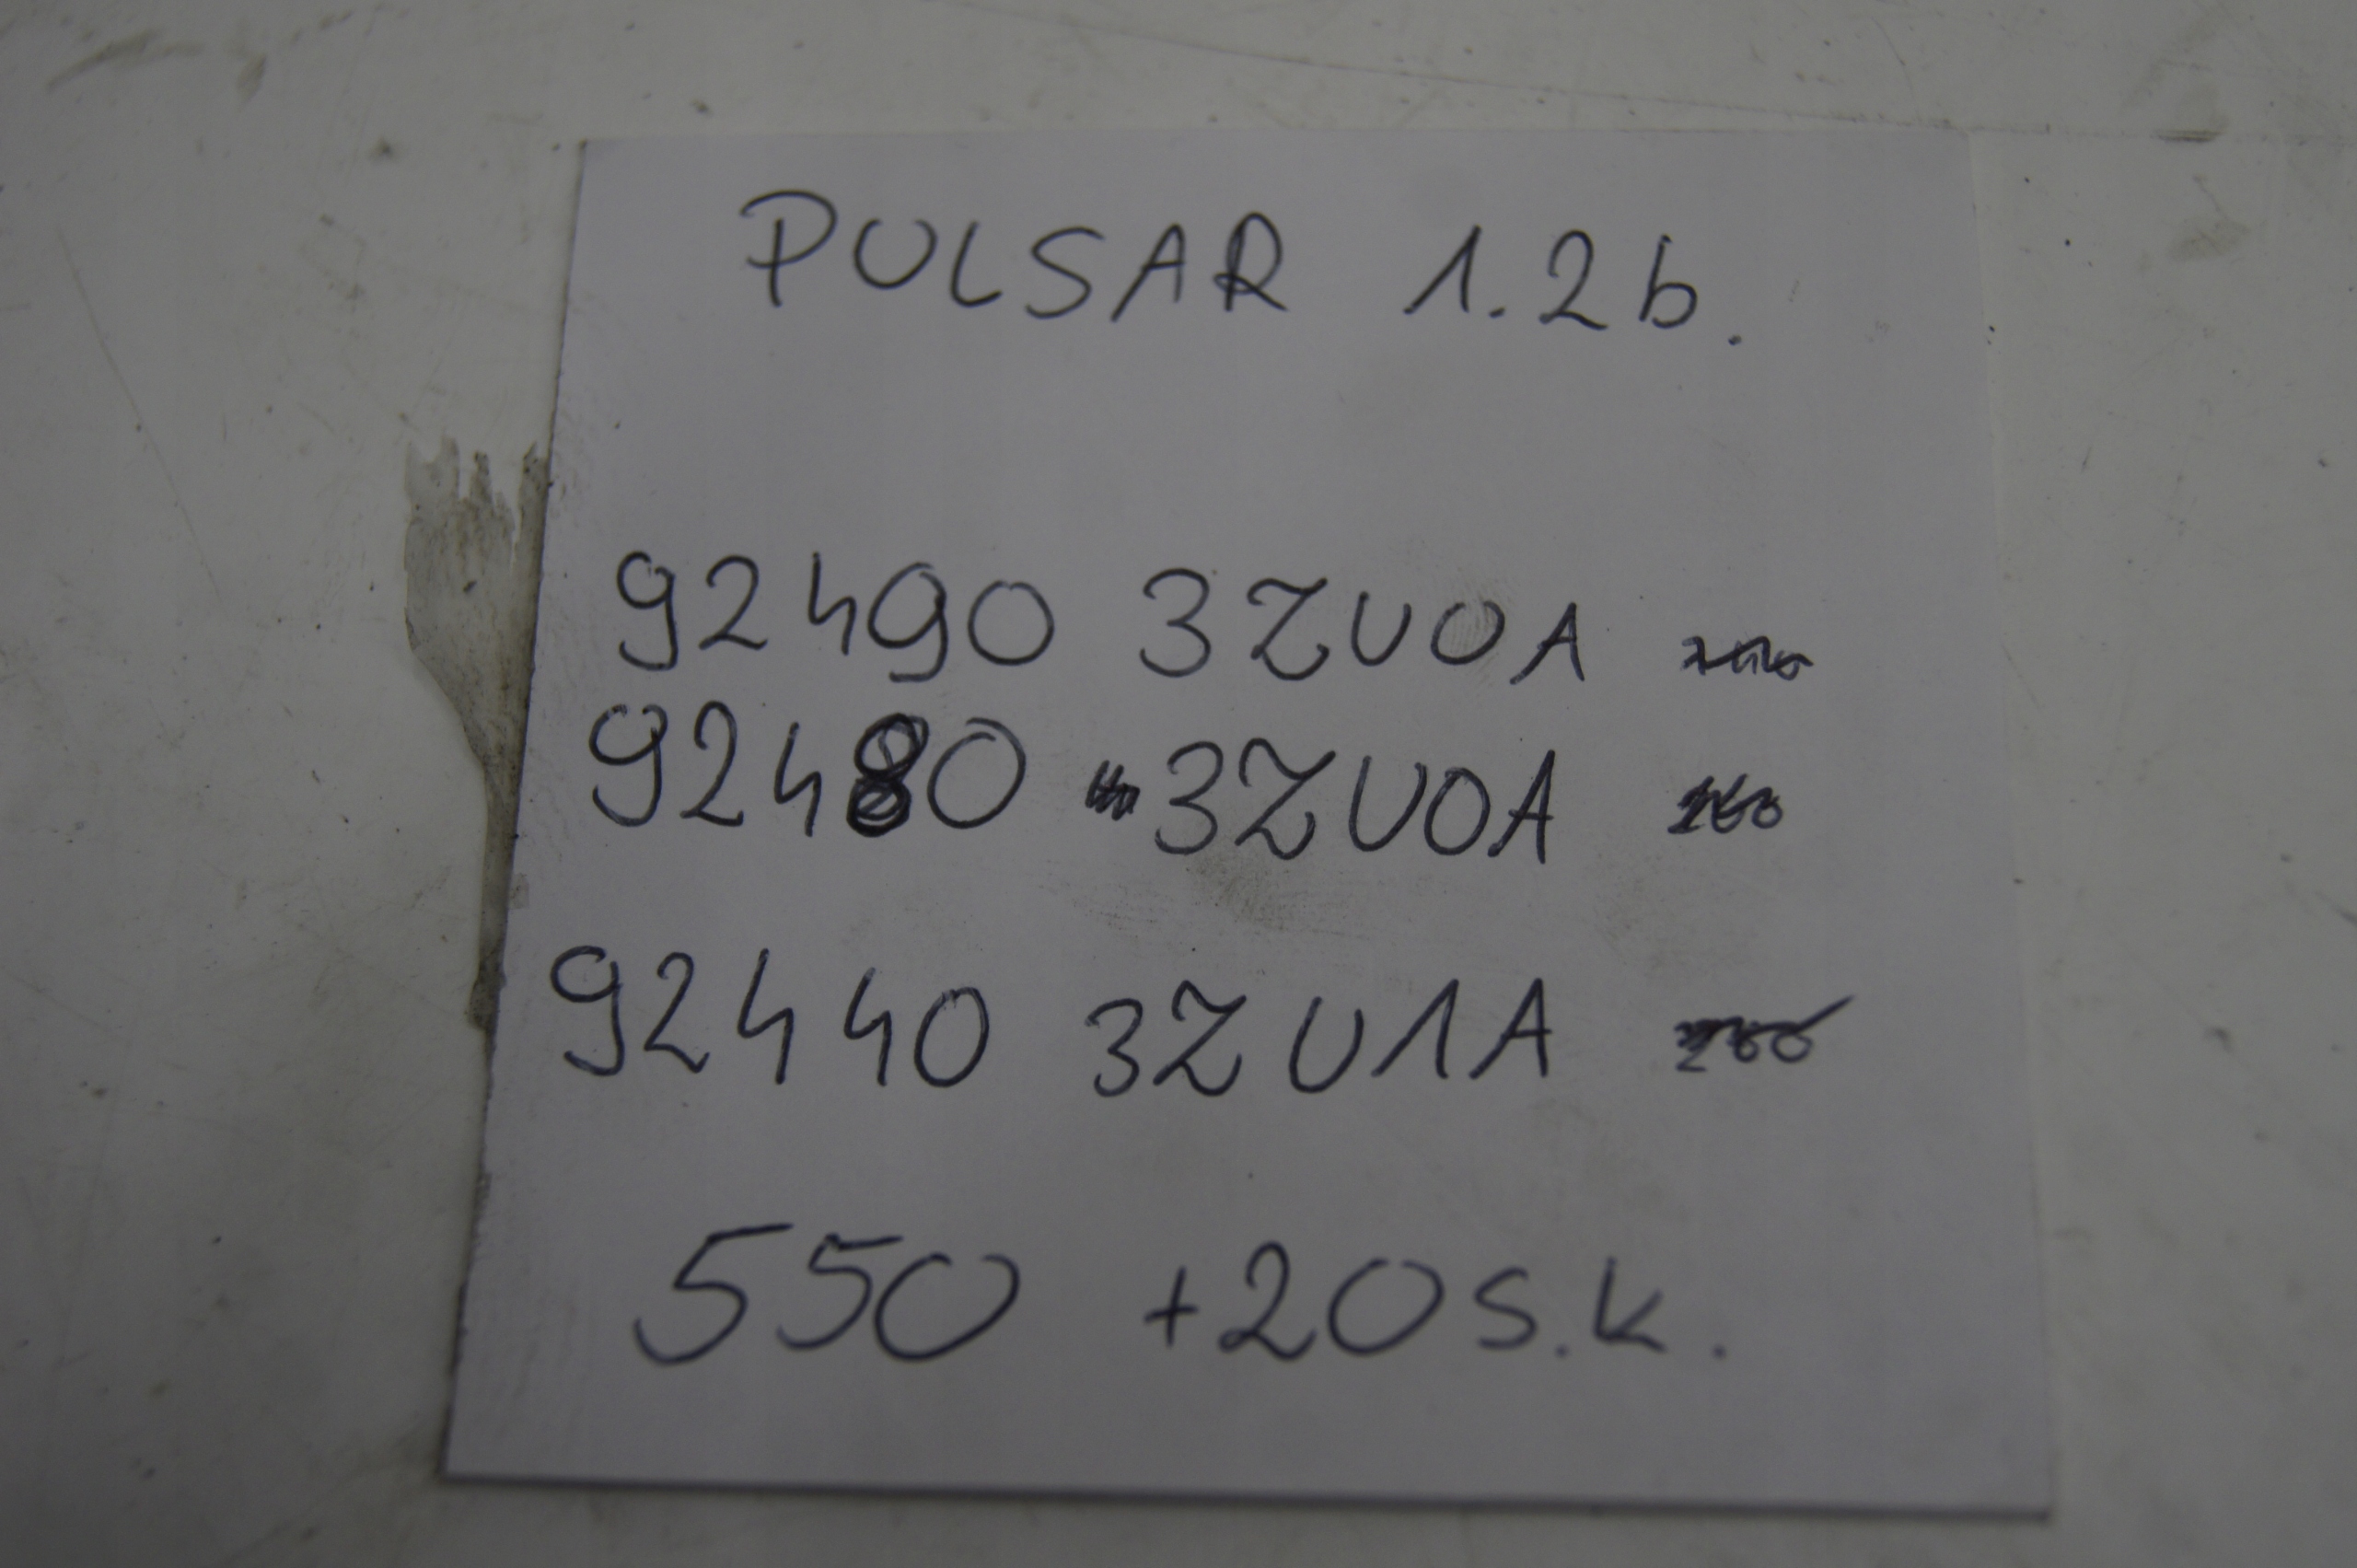 PULSAR 1.2 b.
92490 3ZU0A
92480 3ZU0A
92440 3ZU1A
550 +20 S.K.